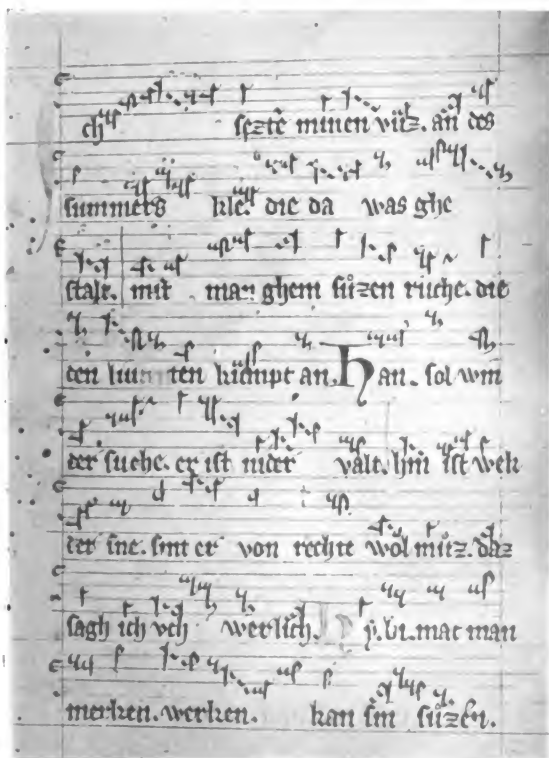 ch sezte minen vůz. an des
summers kle. die da was ghe
stalt. mit man ghem sůzen ruche. die
den luten kůmpt an. Han. sol win
der suche. er ist nider valt. hm ist wek
der sne. sint er von rechte wol můz. daz
sagh ich vch werlich. bi. mac man
merken. werken. kan sin sůzen.